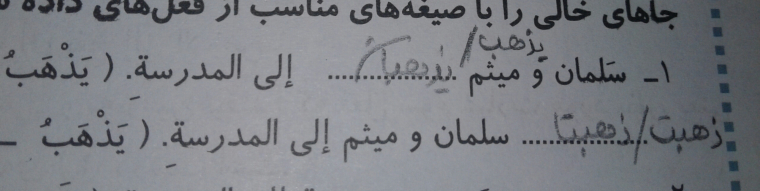 جاهای خالی را با صیغه‌های مناسب از فعل‌های داده
یذهب/
۱ـ سَلمان و میثم یذهبان ............ إلی المدرسةِ. ( یَذْهَبُ
ذهبت/ذهبتا ............ سلمان و میثم إلی المدرسةِ. ( یَذْهَبُ ـ